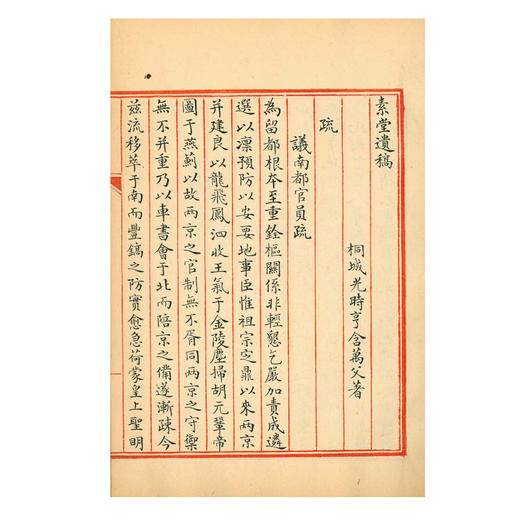 素堂遺稿
桐城光時亨含萬父著
疏
議南都官員疏
為留都根本至重銓樞關係非輕懇乞嚴加責成遴
選以凛預防以安要地事臣惟祖宗定鼎以來兩京
并建良以龍飛鳳泗收王氣于金陵塵掃胡元鞏帝
圖于燕薊以故兩京之官制無不胥同兩京之守禦
無不并重乃以車書會于北而陪京之備遂漸疎今
茲流移萃于南而豐鎬之防實愈急荷蒙皇上聖明